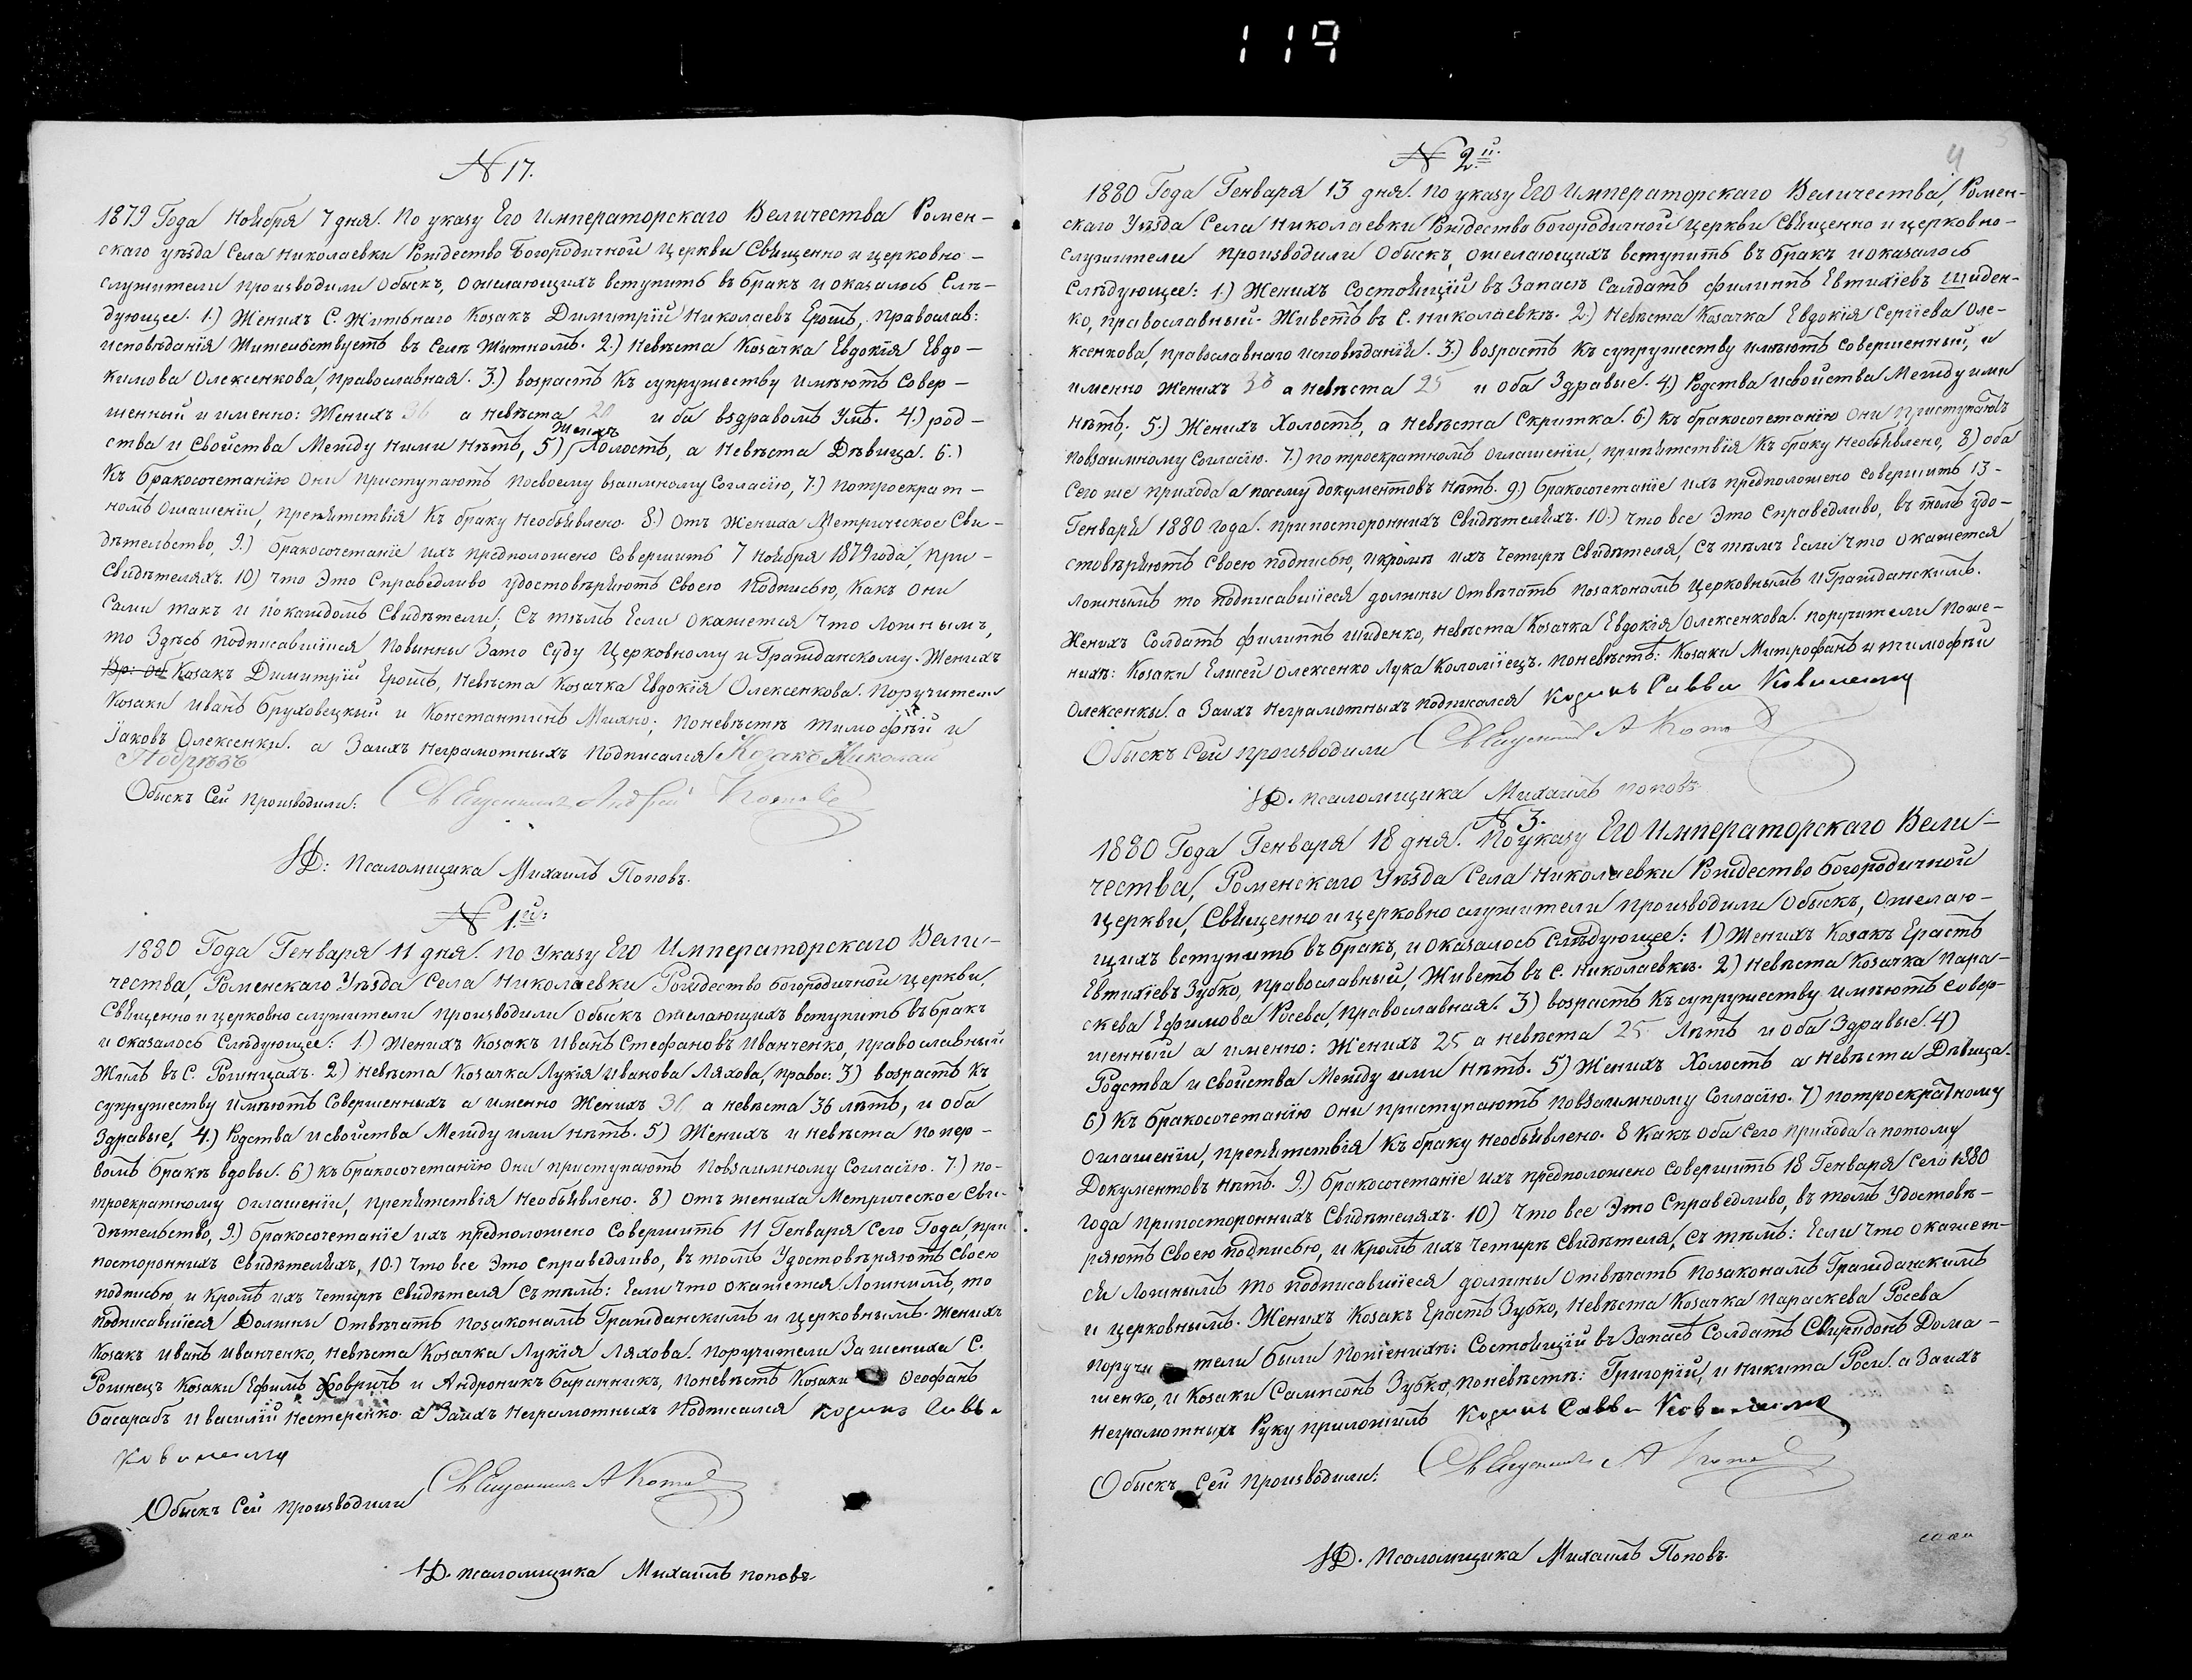 119
N 17.
1879 Года Ноября 7 дня. По указу Его Императорскаго Величества Ромен-
скаго уѣзда Села Николаевки Рождество Богородичной Церкви Священно и церковно-
служители производили Обыскъ, ожелающихъ вступить въ бракъ и оказалось Слѣ-
дующее. 1.) Женихъ С. Житьнаго Козакъ Димитрій Николаевъ Ерошъ, Православ:
исповѣданія жительствуетъ въ Селѣ Житномъ. 2.) Невѣста Козачка Евдокія Евдо-
кимова Олексенкова, православная. 3.) возрастъ къ супружеству имѣютъ Совер-
шенный и именно: Женихъ 36 а невѣста 20 и ба вздравомъ Умѣ. 4.) род-
ства и Свойства Между Ними Нѣтъ, 5) Женихъ Холостъ, а Невѣста Дѣвица. 6.)
Къ бракосочетанію Они приступаютъ посвоему взаимному Согласію, 7.) потроекрат-
номъ Оглашеніи, препятствія Къ браку Необъявлено. 8.) Отъ Жениха Метрическое Сви-
дѣтельство, 9.) бракосочетаніе ихъ предположено Совершить 7 Ноября 1879 года, при-
Свидѣтеляхъ. 10) Что Это Справедливо удостовѣряютъ Своею Подписью, Какъ Они
Сами такъ и покаждомъ Свидѣтели; Съ тѣмъ Если Окажется Что Ложнымъ,
то Здѣсь подписавшіися Повинны Зато Суду Церковному и Гражданскому. Женихъ
Козакъ Димитрій Ерошъ, Невѣста Козачка Евдокія Олексенкова. Поручители
Козаки Иванъ Бруховецкий и Константинъ Михно; поневѣстѣ Тимофѣй и
Іаковъ Олексенки. а Заихъ Неграмотныхъ Подписался Козакъ Николай
Обыскъ Сей Производили: Священникъ Андрей Поповъ
И.Д: Псаломщика Михаилъ Поповъ.
N 1.й:
1880 Года Генваря 11 дня. по Указу Его Императорскаго Вели-
чества, Роменскаго Уѣзда Села Николаевки Рождество богородичной Церкви,
Священно и церковно служители производили Обыскъ ожелающихъ вступить въ бракъ
и оказалось Слѣдующее: 1.) Женихъ Козакъ Иванъ Стефановъ Иванченко, православный
Жить въ С. Рогинцахъ. 2) Невѣста Козачка Лукія Иванова Ляхова, правос: 3) возрастъ къ
супружеству имѣютъ Совершенныхъ а именно Женихъ 36 а невѣста 36 лѣтъ, и оба
Здравые, 4.) Родства исвойства Между ими нѣтъ. 5) Женихъ и невѣста по пер-
вомъ бракѣ вдовы. 6) къ бракосочетанію Они приступаютъ повзаимному Согласію. 7.) по-
троекратному Оглашеніи, препятствія Необъявлено. 8) отъ жениха Метрическое Сви-
дѣтельство, 9.) бракосочетаніе ихъ предположено Совершить 11 Генваря Сего Года, при
постороннихъ Свидѣтеляхъ, 10.) Что все Это Справедливо, въ томъ Удостовѣряютъ Своею
подписью, и Кромѣ ихъ Четырѣ Свидѣтеля Съ тѣмъ: Если Что окажется Ложнимъ, то
подписавшіеся Должны Отвѣчать позаконамъ Гражданскимъ и Церковнымъ. Женихъ
Козакъ Иванъ Иванченко, невѣста Козачка Лукія Ляхова. поручители За жениха С.
Рогинецъ Козаки Ефимъ Ховричъ и Андроникъ Баранникъ, поневѣстѣ Козаки Ѳеофанъ
басарабъ и василій Нестеренко. а Заихъ Неграмотныхъ Подписался Козакъ Савва
Обыскъ Сей производили Священникъ А Поповъ
И.Д. псаломщика Михаилъ поповъ.
4
N 2.й.
1880 Года Генваря 13 дня. по указу Его Императорскаго Величества, Ромен-
скаго Уѣзда Села Николаевки Рождество богородичной Церкви Священно и церковно-
служители производили Обыскъ, ожелающихъ вступить въ бракъ иоказалось
Слѣдующее: 1.) Женихъ Состоящій въ Запасѣ Салдатъ филиппъ Евтихіевъ Шиден-
ко, православный. Живетъ въ С. Николаевкѣ. 2.) Невѣста Козачка Евдокія Сергіева Оле-
ксенкова, православнаго исповѣданія. 3.) возрастъ къ супружеству имѣютъ совершенный, и
именно женихъ а невѣста 25 и оба Здравые. 4.) Родства исвойства Между ими
Нѣтъ, 5.) Женихъ Холостъ, а Невѣста Скритка. 6.) къ бракосочетанію Они приступаютъ
повзаимному Согласію. 7.) по троекратномъ оглашеніи, припятствія къ браку Необъявлено, 8) оба
Сего же прихода а посему документовъ нѣтъ. 9) бракосочетаніе ихъ предположено совершить 13-
Генваря 1880 года. припостороннихъ Свидѣтеляхъ. 10.) что все Это Справедливо, въ томъ удо-
стовѣряютъ Своею подписью, икромѣ ихъ Четирѣ Свидѣтеля, съ тѣмъ Если Что окажется
Ложнымъ то подписавшіеся должны Отвѣчать позаконамъ Церковнымъ и Гражданскимъ.
Женихъ Солдатъ филиппъ шиденко, невѣста Козачка Евдокія Олексенкова. поручители Поже-
нихѣ: Козаки Елисей Олексенко Лука Коломіецъ. поневѣстѣ: Козаки Митрофанъ и тимофѣй
Олексенкы. а Заихъ Неграмотныхъ подписался Козакъ Савва
Обыскъ Сей производили Священникъ А Поповъ
И.Д. псаломщика Михаилъ поповъ.
N 3.
1880 Года Генваря 18 дня. По указу Его Императорскаго Вели-
чества, Роменскаго Уѣзда Села Николаевки Рождество богородичной
Церкви, Священно и церковно служители производили Обыскъ, Ожелаю-
щихъ вступить въ бракъ, и оказалось слѣдующее: 1) Женихъ Козакъ Ерастъ
Евтихіевъ Зубко, православный, Живетъ въ С. Николаевкѣ. 2) Невѣста Козачка пара-
скева Ефимова Росева, православная. 3) возрастъ къ супружеству имѣютъ Совер-
шенный а именно: Женихъ 25 а невѣста 25 лѣтъ и оба Здравые. 4)
Родства и свойства Между ими нѣтъ. 5) Женихъ Холостъ а невѣста Дѣвица.
6) Къ бракосочетанію Они приступаютъ повзаимному Согласію. 7) потроекратному
оглашеніи, препятствія къ браку Необъявлено. 8 Какъ Оба Сего прихода а потому
Документовъ нѣтъ. 9.) бракосочетаніе ихъ предположено Совершить 18 Генваря Сего 1880
года припостороннихъ Свидѣтеляхъ. 10) Что все Это Справедливо, въ томъ Удостовѣ-
ряютъ Своею подписью, и Кромѣ ихъ Четирѣ Свидѣтеля, Съ тѣмъ: Если Что окажет-
ся ложнымъ то подписавшіеся должны Отвѣчать позаконамъ Гражданскимъ
и церковнымъ. Женихъ Козакъ Ерастъ Зубко, Невѣста Козачка параскева Росева
поручи тели были поженихѣ: Состоящій въ Запасѣ Солдатъ Свиридонъ Дома-
шенко, и Козаки Сампсонъ Зубко, поневѣстѣ: Григорій, и Никита Роси. а Заихъ
неграмотныхъ Руку приложилъ Козакъ Савва
Обыскъ Сей Производили: Священникъ А Поповъ
И.Д. Псаломщика Михаилъ Поповъ.